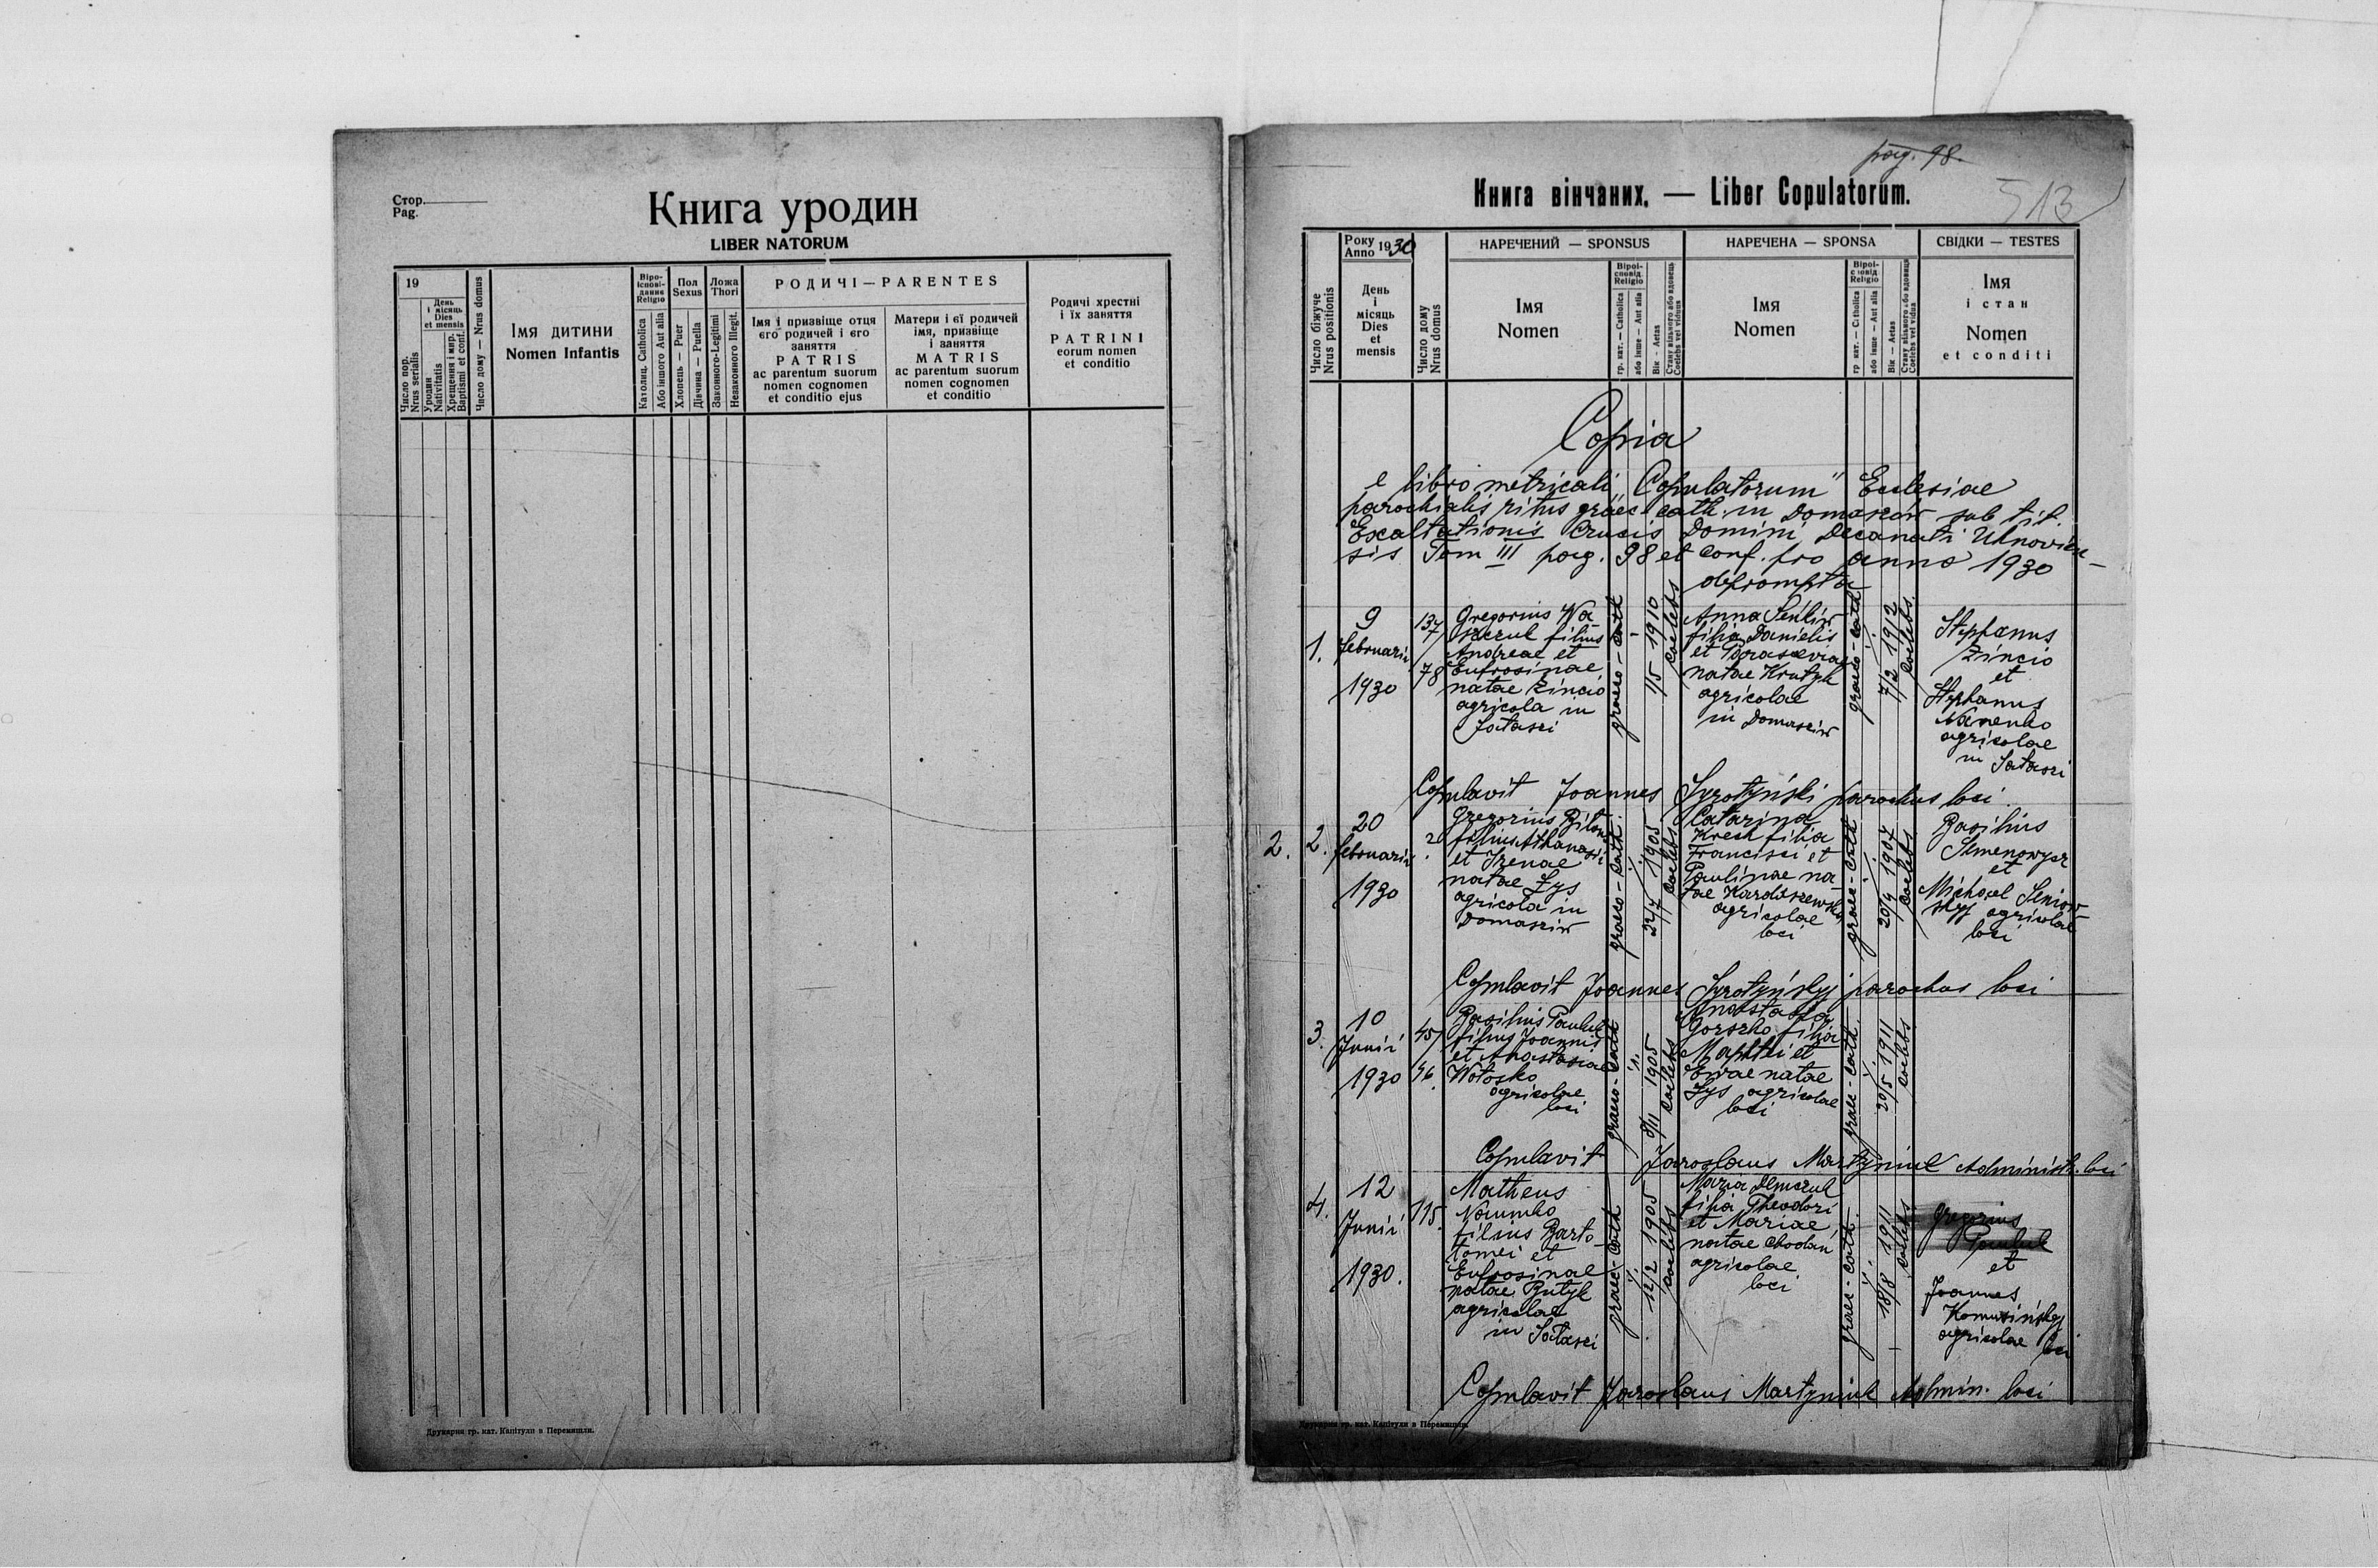 Стор.
Pag.
Книга уродин
LIBER NATORUM
19
День
і місяць
Dies
et mensis
Число пор.
Nrus serialis
Уродин
Nativitatis
Хрещення і мир.
Baptismi et conf.
Число дому — Nrus domus
Імя дитини
Nomen Infantis
Віро-
ісповi-
дання
Religio
Католиц. Catholica
Або іншого Aut alia
Пол
Sexus
Хлопець — Puer
Дівчина — Puella
Ложа
Thori
Законного-Legitimi
Незаконного Illegit.
РОДИЧІ — PARENTES
Імя і призвіще отця
єго родичей і єго
заняття
PATRIS
ac parentum suorum
nomen cognomen
et conditio ejus
Матери і єї родичей
імя, призвіще
і заняття
MATRIS
ac parentum suorum
nomen cognomen
et conditio
Родичі хрестні
і їх заняття
PATRINI
eorum nomen
et conditio
Друкарня гр. кат. Капітули в Перемишли.
pag. 98.
513
Книга вінчаних. — Liber Copulatorum.
Число біжуче
Nrus positionis
Року
Anno 1930
День
і
місяць
Dies
et
mensis
Число дому
Nrus domus
НАРЕЧЕНИЙ — SPONSUS
Імя
Nomen
Віроі-
сповід
Religio
гр. кат. — Catholica
або інше — Aut alia
Вік — Aetas
Стану вільного або вдовець
Coelebs vel viduus
НАРЕЧЕНА — SPONSA
Імя
Nomen
Віроі-
сповід
Religio
гр кат. — Catholica
або інше — Aut alia
Вік — Aetas
Стану вільного або вдовиця
Coelebs vel vidua
СВІДКИ — TESTES
Імя
і стан
Nomen
et conditi
Copia
e libro metricali „Copulatorum" Ecclesiae
parochialis ritus graec. cath. in Domaszów sub tit.
Exaltationis Crucis Domini Decanati Uhnovien-
sis Tom III pag. 98 et conf. pro anno 1930
deprompta
1.
9
Februarii
1930
137
78
Gregorius
filius
Andreae et
Eufrosinae
natae Zincio
agricola in
graeco-cath
1/5 1910
coelebs
Anna
filia Danielis
et Parasceviae
natae Krutyk
agricolae
in Domasziw
graeco-cath
7/2 1912
coelebs.
Stephanus
Zincio
et
Stephanus
agricolae
in
Copulavit Joannes Syrotyński parochus loci.
2. 2.
20
februarii
1930
?
Gregorius
filius Athanasii
et Irenae
natae Zys
agricola in
Domasziw
graeco-cath.
22/7 1905
coelebs
Catarina
Krech filia
Francisci et
Paulinae na-
tae
agricolae
loci
graec-cath
20/4 1907
coelebs
Basilius
Semenowycz
et
Michael
agricolae
loci
Copulavit Joannes Syrotyńskyj parochus loci
3.
10
Junii
1930
45
46.
Basilius Pauluk
filius Joannis
et Anastasiae
Wołosko
agricolae
loci
graeco-cath
8/11 1905
coelebs
Anastasia
Gorszko filia
Mathei et
Evae natae
Zys agricolae
loci
graec-cath.
20/5 1911
coelebs
Copulavit Jaroslaus Martyniuk Administr. loci
4.
12
Junii
1930.
115.
Matheus
Naumko
filius Barto-
lomei et
Eufrosinae
natae Butyk
agricolae
in
graec-cath
12/2 1905
coelebs
Maria Demczuk
filia Theodori
et Mariae
natae Chodań
agricolae
loci
graec-cath.
18/8 1911
coelebs
Gregorius
Pauluk
et
Joannes
agricolae loci
Copulavit Jaroslaus Martyniuk Admin. loci
Друкарня гр. кат. Капітули в Перемишли.